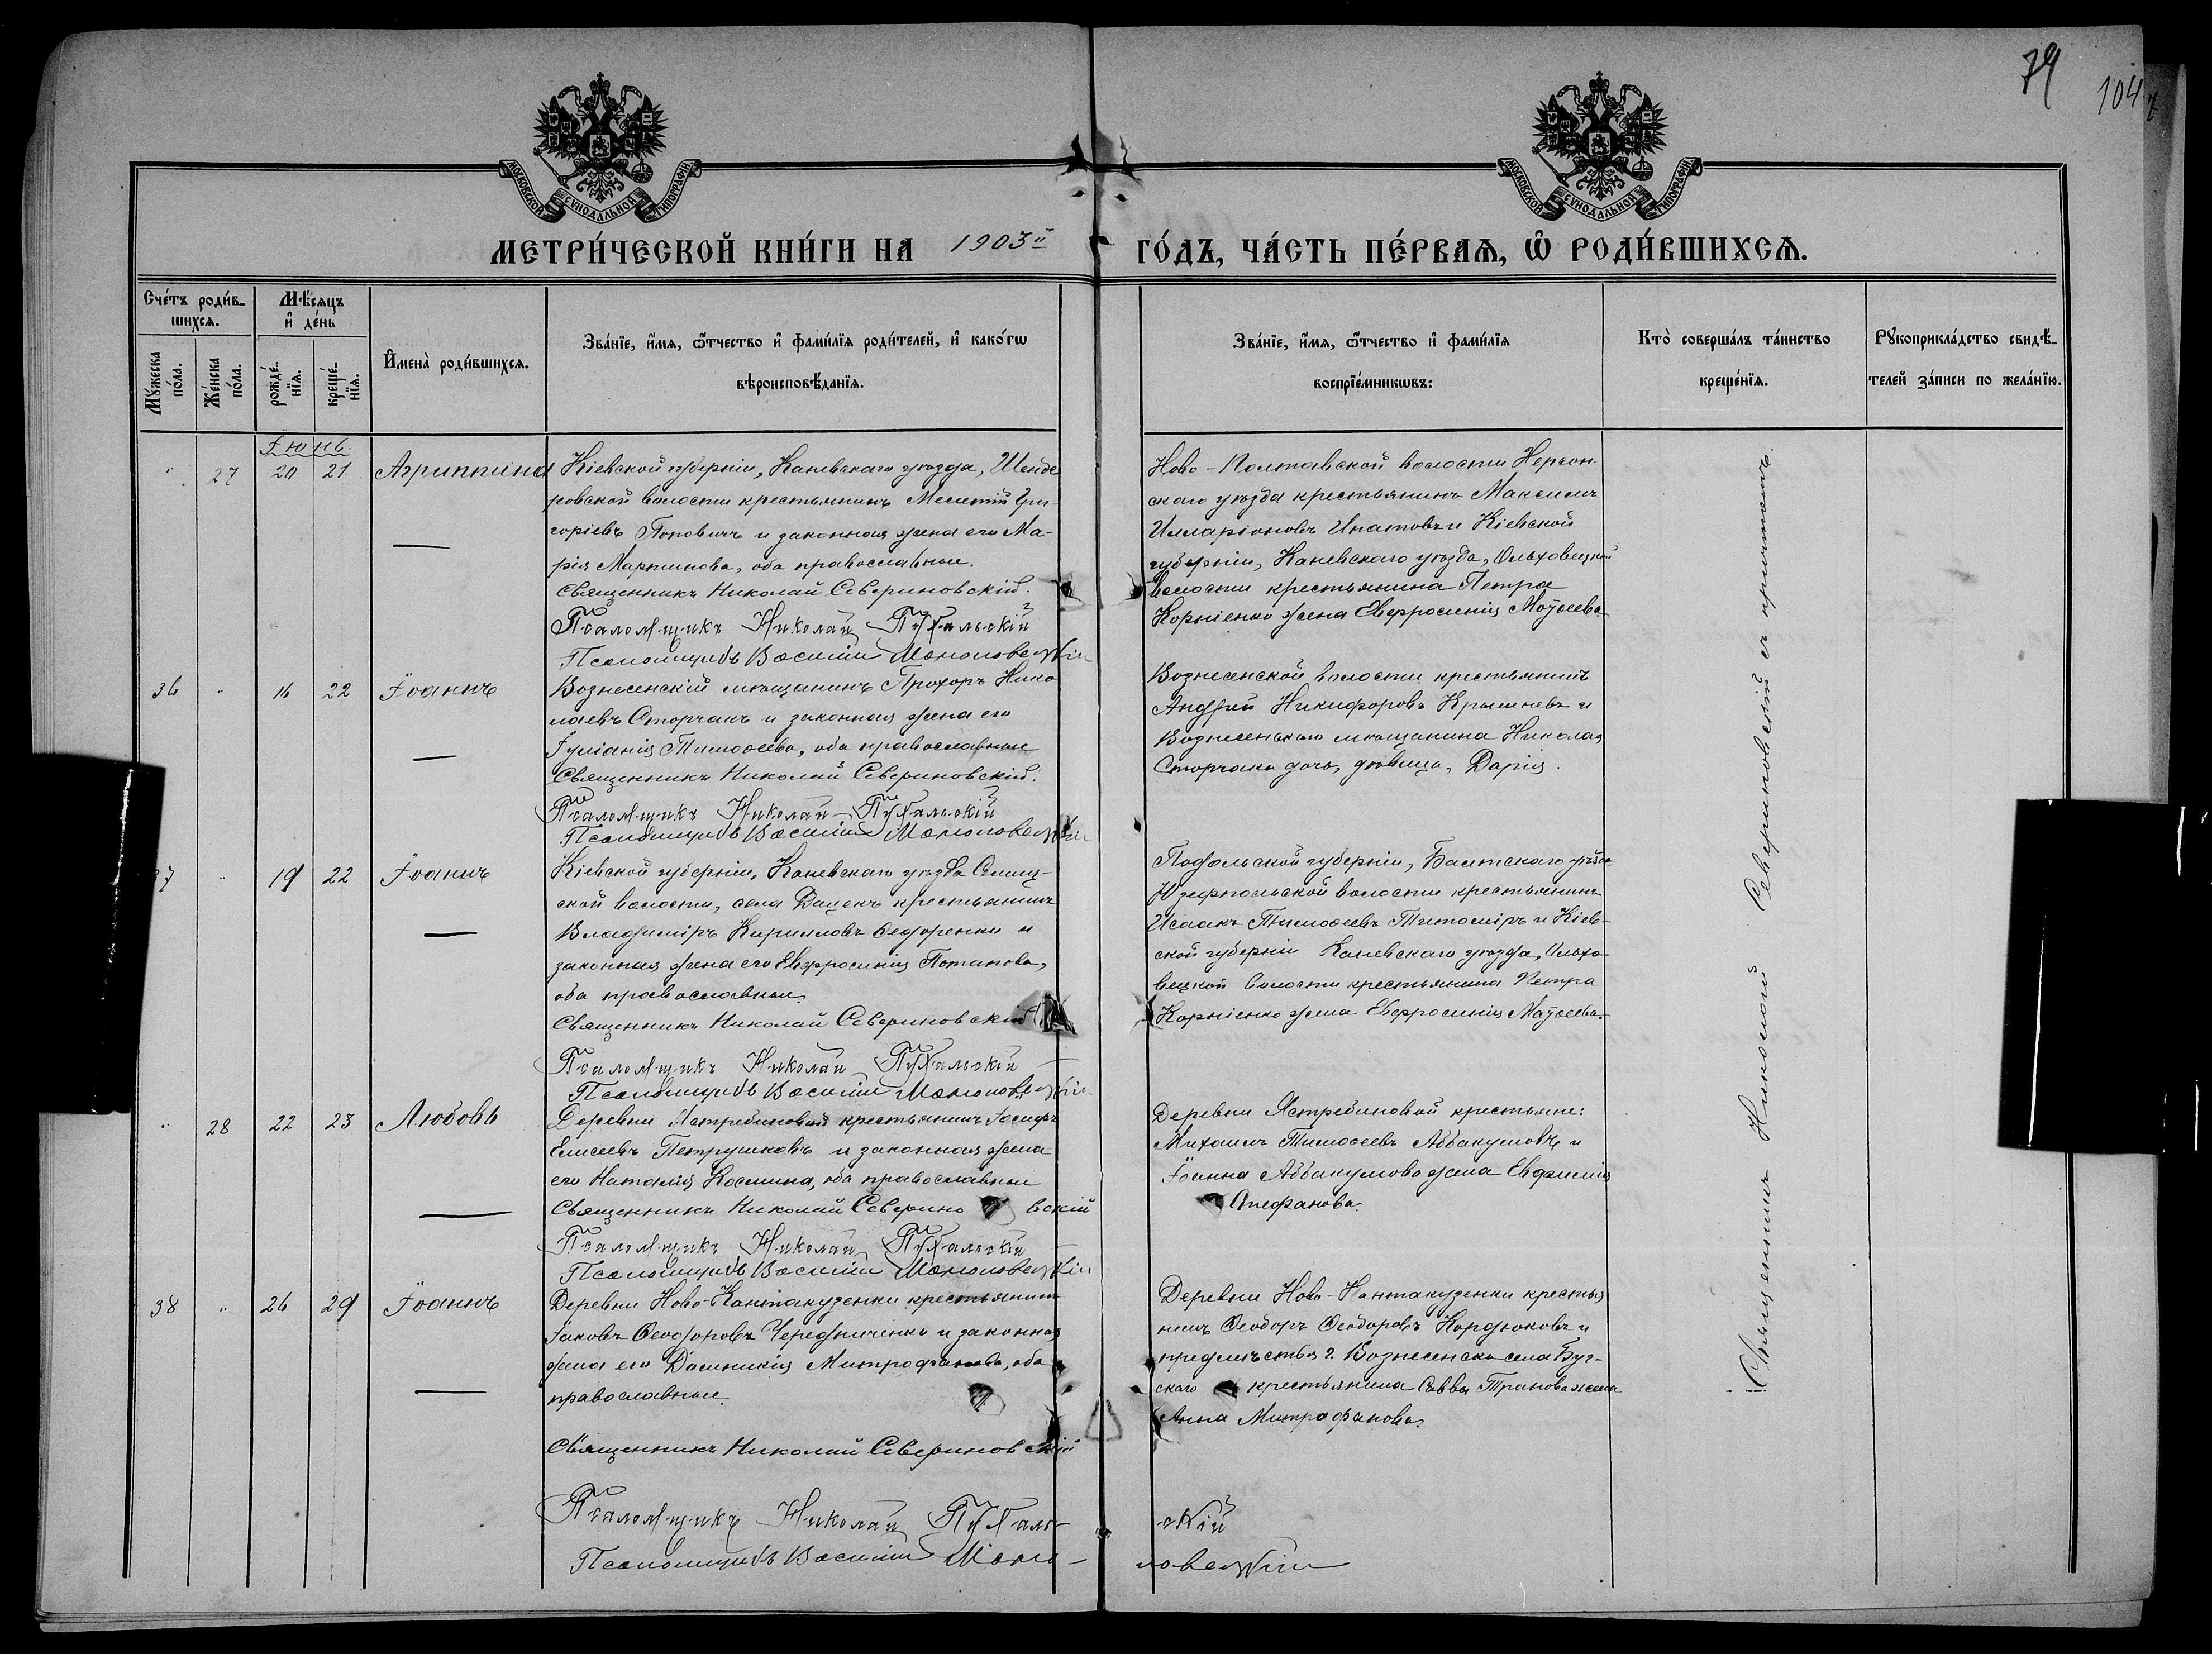 79
104
МОСКОВСКОЙ СѴНОДАЛЬНОЙ ТИПОГРАФІИ
МОСКОВСКОЙ СѴНОДАЛЬНОЙ ТИПОГРАФІИ
МЕТРИ́ЧЕСКОЙ КНИ́ГИ НА 1903й ГО́ДЪ, ЧА́СТЬ ПЕ́РВАѦ, Ѽ РОДИ́ВШИХСѦ.
Сче́тъ роди́в-
шихсѧ.
Мꙋ́жеска по́ла.
Же́нска по́ла.
Мѣ́сѧцъ и҆ де́нь
рожде́-
нїѧ.
креще́-
нїѧ.
И҆мена̀ роди́вшихсѧ.
Зва́нїе, и҆́мѧ, ѻ҆́тчество и҆ фами́лїѧ роди́телей, и҆ како́гѡ
вѣроисповѣ́данїѧ.
Зва́нїе, и҆́мѧ, ѻ҆́тчество и҆ фами́лїѧ
воспрїе́мникѡвъ:
Кто̀ соверша́лъ та́инство
креще́нїѧ.
Рꙋкоприкла́дство свидѣ́-
телей за́писи по жела́нїю.
Іюнь
" 27 20 21 Агриппина
Кіевской губерніи, Каневскаго уѣзда, Шенде
ровской волости крестьянинъ Мелетій Гри-
горіевъ Поповичъ и законная жена его Ма-
рія Мартинова, оба православные.
Священникъ Николай Севериновскій.
Псаломщикъ Николай Пухальскій
Псаломщикъ Василій
Ново-Полтавской волости Херсон-
скаго уѣзда крестьянинъ Максимъ
Илларіоновъ Ипатовъ и Кіевской
губерніи, Каневскаго уѣзда, Ольховецкой
волости крестьянина Петра
Корніенко жена Евфросинія Моѵсеева.
36 " 16 22 Іоаннъ
Вознесенскій мѣщанинъ Прохоръ Нико
лаевъ Сторчакъ и законная жена его
Іуліанія Тимоѳеева, оба православные
Священникъ Николай Севериновскій.
Псаломщикъ Николай Пухальскій
Псаломщикъ Василій
Вознесенской волости крестьянинъ
Андрей Никифоровъ Крышневъ и
Вознесенскаго мѣщанина Николая
Сторчака дочь, дѣвица, Дарія.
37 " 19 22 Іоаннъ
Кіевской губерніи, Каневскаго уѣзда
ской волости, села Даценъ крестьянинъ
Владиміръ Кирилловъ Ѳедоренко и
законная жена его Евфросинія Потапова,
оба православные.
Священникъ Николай Севериновскій
Псаломщикъ Николай Пухальскій
Псаломщикъ Василій
Подольской губерніи, Балтскаго уѣзда
Юзефпольской волости крестьянинъ
Исаакъ Тимоѳеевъ Титоміръ и Кіев-
ской губерніи Каневскаго уѣзда, Ольхо-
вецкой волости крестьянина Петра
Корніенко жена Евфросинія Моѵсеева.
" 28 22 23 Любовь
Деревни Ястребиновой крестьянинъ Іосифъ
Елисеевъ Петрушковъ и законная жена
его Наталія Космина, оба православные
Священникъ Николай Севериновскій
Псаломщикъ Николай Пухальскій
Псаломщикъ Василій
Деревни Ястребиновой крестьяне:
Михаилъ Тимоѳеевъ Аввакумовъ и
Іоанна Аввакумова жена Евфимія
Стефанова.
38 " 26 29 Іоаннъ
Деревни Ново-Кантакузенки крестьянинъ
Іаковъ Ѳеодоровъ Чередниченко и законная
жена его Доминикія Митрофанова, оба
православные.
Священникъ Николай Севериновскій
Псаломщикъ Николай Пухаль-
скій
Псаломщикъ Василій
Деревни Ново-Кантакузенки крестья
нинъ Ѳеодоръ Ѳеодоровъ Кордюковъ и
предмѣстья г. Вознесенска села Буг-
скаго крестьянина Саввы Транова жена
Анна Митрофанова.
Священникъ Николай Севериновскій съ причтомъ.